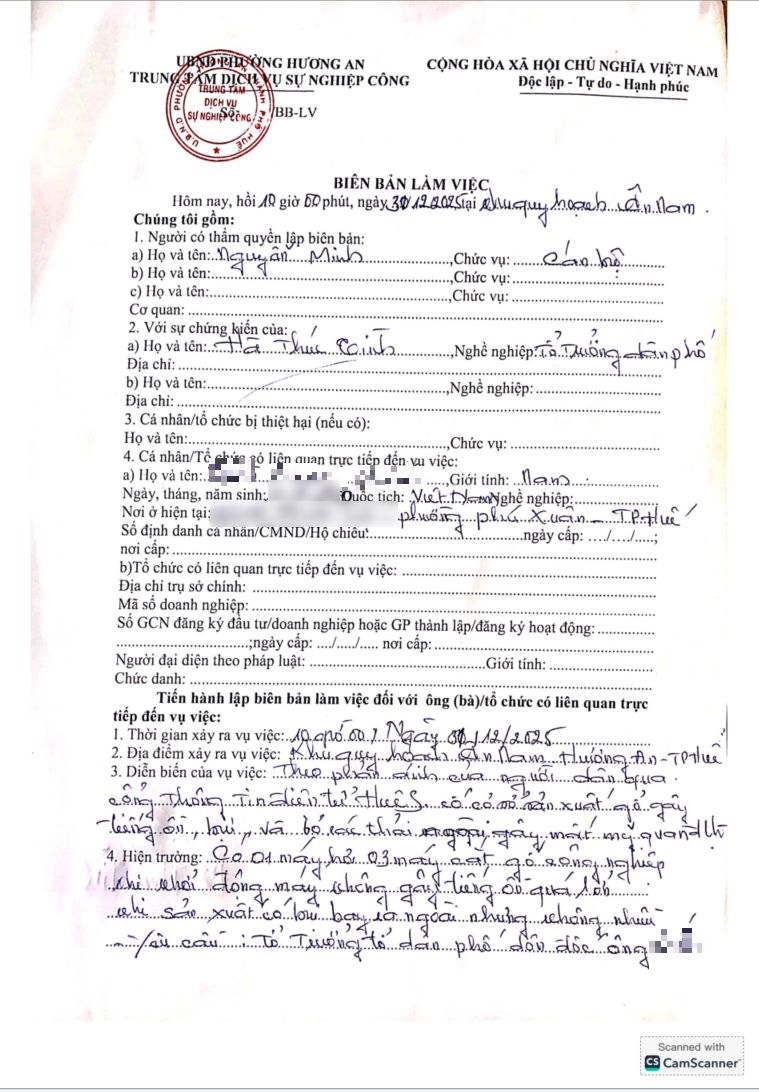 UBND PHƯỜNG HƯƠNG AN
TRUNG TÂM DỊCH VỤ SỰ NGHIỆP CÔNG
CỘNG HÒA XÃ HỘI CHỦ NGHĨA VIỆT NAM
Độc lập - Tự do - Hạnh phúc
TRUNG TÂM
DỊCH VỤ
SỰ NGHIỆP CÔNG
Số: /BB-LV
BIÊN BẢN LÀM VIỆC
Hôm nay, hồi 10 giờ 00 phút, ngày 31/12/2025 tại khu quy hoạch Nam.
Chúng tôi gồm:
1. Người có thẩm quyền lập biên bản:
a) Họ và tên: Nguyễn Minh, Chức vụ: Cán bộ
b) Họ và tên:, Chức vụ:
c) Họ và tên:, Chức vụ:
Cơ quan:
2. Với sự chứng kiến của:
a) Họ và tên: Hà Thúc, Nghề nghiệp: Tổ Trưởng dân phố
Địa chỉ:
b) Họ và tên:, Nghề nghiệp:
Địa chỉ:
3. Cá nhân/tổ chức bị thiệt hại (nếu có):
Họ và tên:, Chức vụ:
4. Cá nhân/Tổ chức có liên quan trực tiếp đến vụ việc:
a) Họ và tên:, Giới tính: Nam
Ngày, tháng, năm sinh: Quốc tịch: Việt Nam Nghề nghiệp:
Nơi ở hiện tại: phường phú Xuân - TP Huế
Số định danh cá nhân/CMND/Hộ chiếu: ngày cấp: .../.../...;
nơi cấp:
b)Tổ chức có liên quan trực tiếp đến vụ việc:
Địa chỉ trụ sở chính:
Mã số doanh nghiệp:
Số GCN đăng ký đầu tư/doanh nghiệp hoặc GP thành lập/đăng ký hoạt động:
;ngày cấp: .../.../..... nơi cấp:
Người đại diện theo pháp luật: Giới tính:
Chức danh:
Tiến hành lập biên bản làm việc đối với ông (bà)/tổ chức có liên quan trực
tiếp đến vụ việc:
1. Thời gian xảy ra vụ việc: 10 giờ 00, Ngày 31/12/2025
2. Địa điểm xảy ra vụ việc: Khu quy hoạch Nam Hương An - TP Huế
3. Diễn biến của vụ việc: Theo phản ánh của người dân qua
cổng Thông Tin điện tử Huế S. có cơ sở sản xuất gỗ gây
tiếng ồn, bụi, và bỏ các thải ngoài gây mất mỹ quan đô thị
4. Hiện trường: Có 01 máy 03 máy cắt gỗ công nghiệp
khi khởi động máy không gây tiếng ồn quá lớn
khi sản xuất có bụi bay ra ngoài nhưng không nhiều
- Yêu cầu: Tổ Trưởng tổ dân phố đôn đốc ông
Scanned with
CS CamScanner